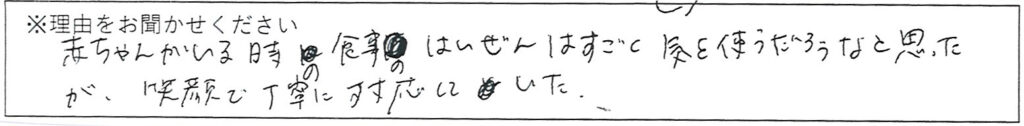 ※理由をお聞かせください
赤ちゃんがいる時の食事のはいぜんはすごく気を使うだろうなと思った
が、笑顔で丁寧に対応していた。